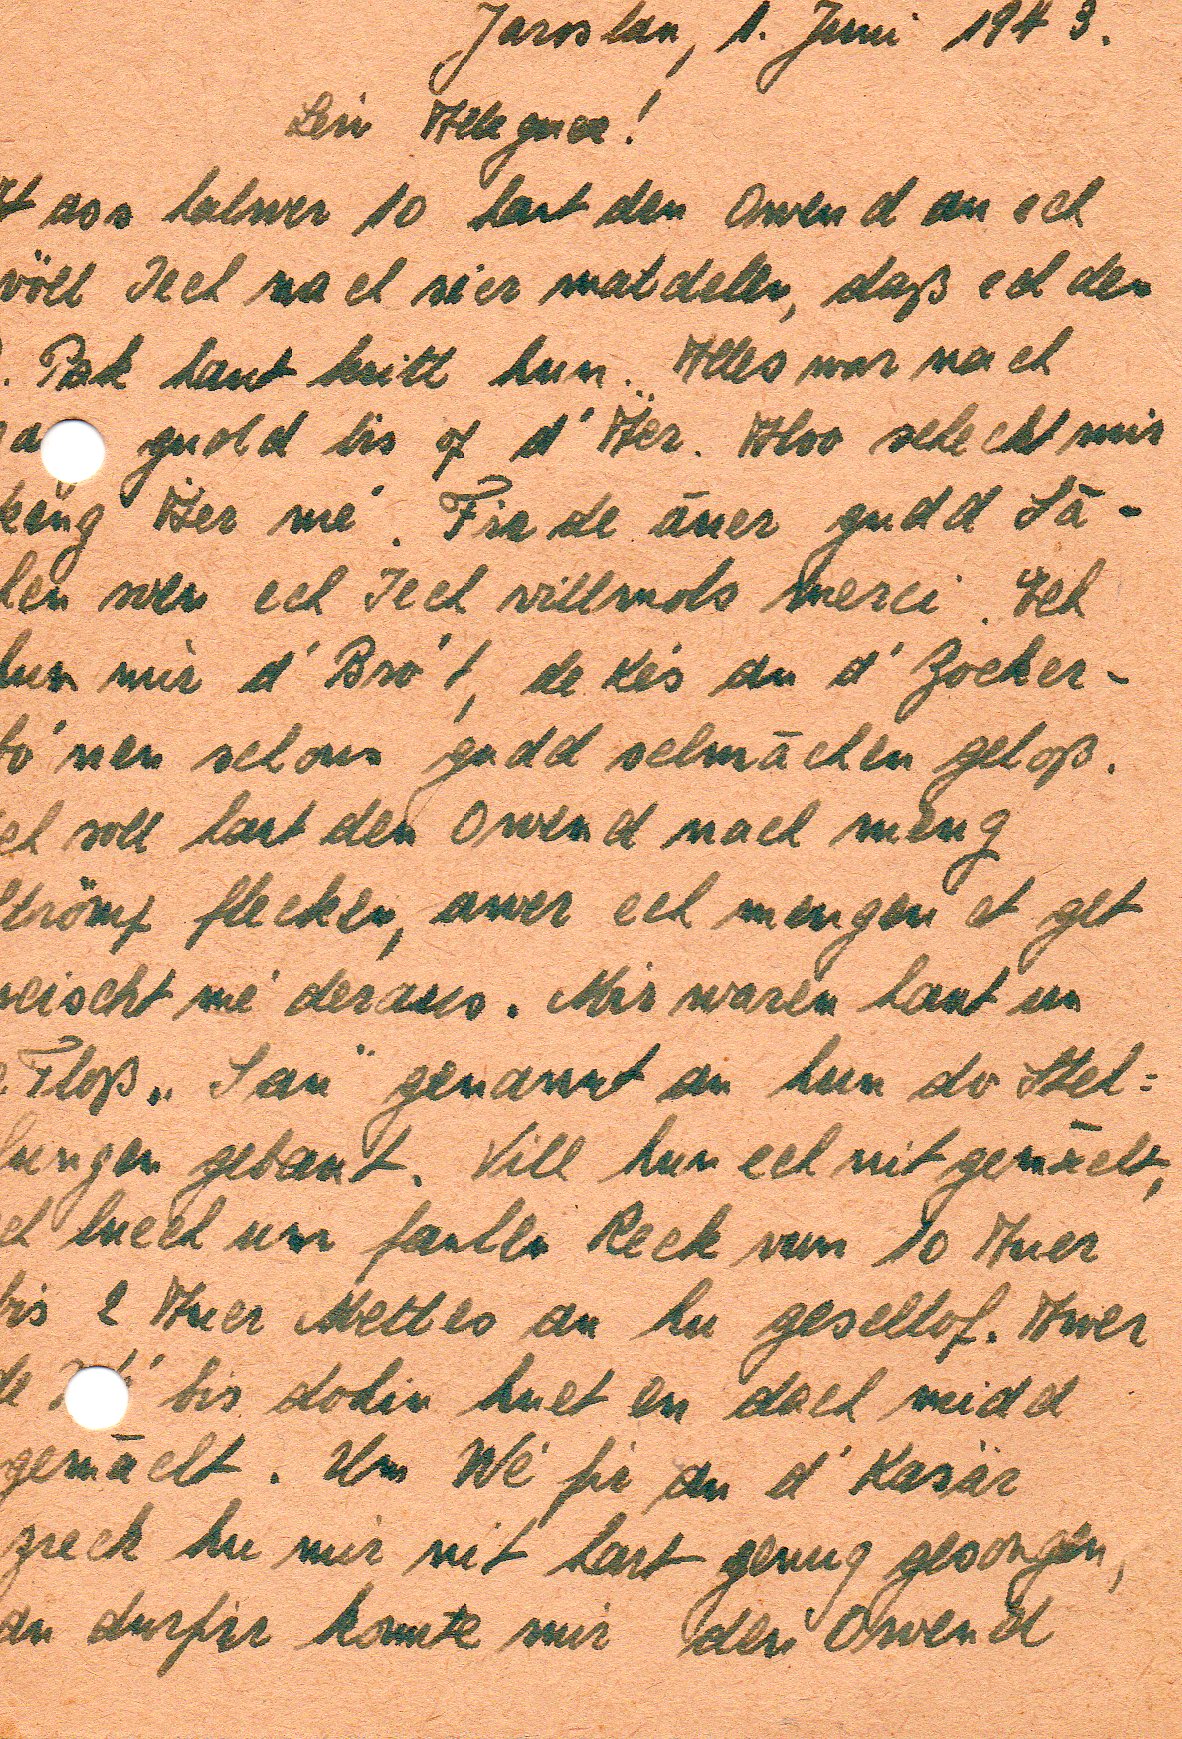 Jaroslau, 1. Juni 1943.
Leiw Alleguer!
Et ass halwer 10 haut den Owend an ech
wöll Iech nach sier matdelen, daß ech den
. Pak haut kritt hun. Alles war nach
guold bis of d' Äer. Also scheckt mir
keng Äer mé. Fir de äner gudd Sä-
chen soen ech Iech villmols merci. Ech
hun mir d' Bro't, de Kés an d' Zocker-
bo'nen schons gudd schmächen geloß.
Ech soll haut den Owend nach meng
Strömp flecken, awer ech mengen et get
neischt mé deraus. Mir waren haut un
e Floß „San" genannt an hun do Stel-
lungen gebaut. Vill hun ech nit gemächt,
ech luech um faulen Reck vun 10 Auer
bis 2 Auer Mettes an hu geschlof. Awer
de bis dohin huet en dach midd
gemächt. Um Wé fir an d' Kasär
zreck hu mir nit hart genug gesongen,
an durfir komte mir den Owend